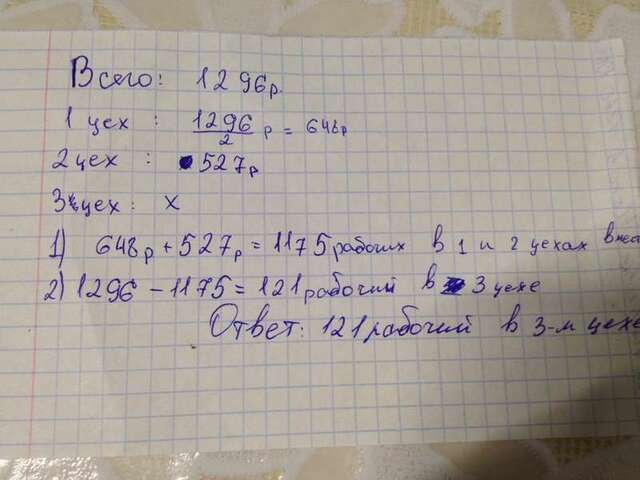 Всего: 1296р.
1 цех : 1296/2 р = 648р
2 цех : 527р
3 цех: x
1) 648р + 527р = 1175 рабочих в 1 и 2 цехах
2) 1296 - 1175 = 121 рабочий в 3 цехе
Ответ: 121 рабочий в 3-м цехе